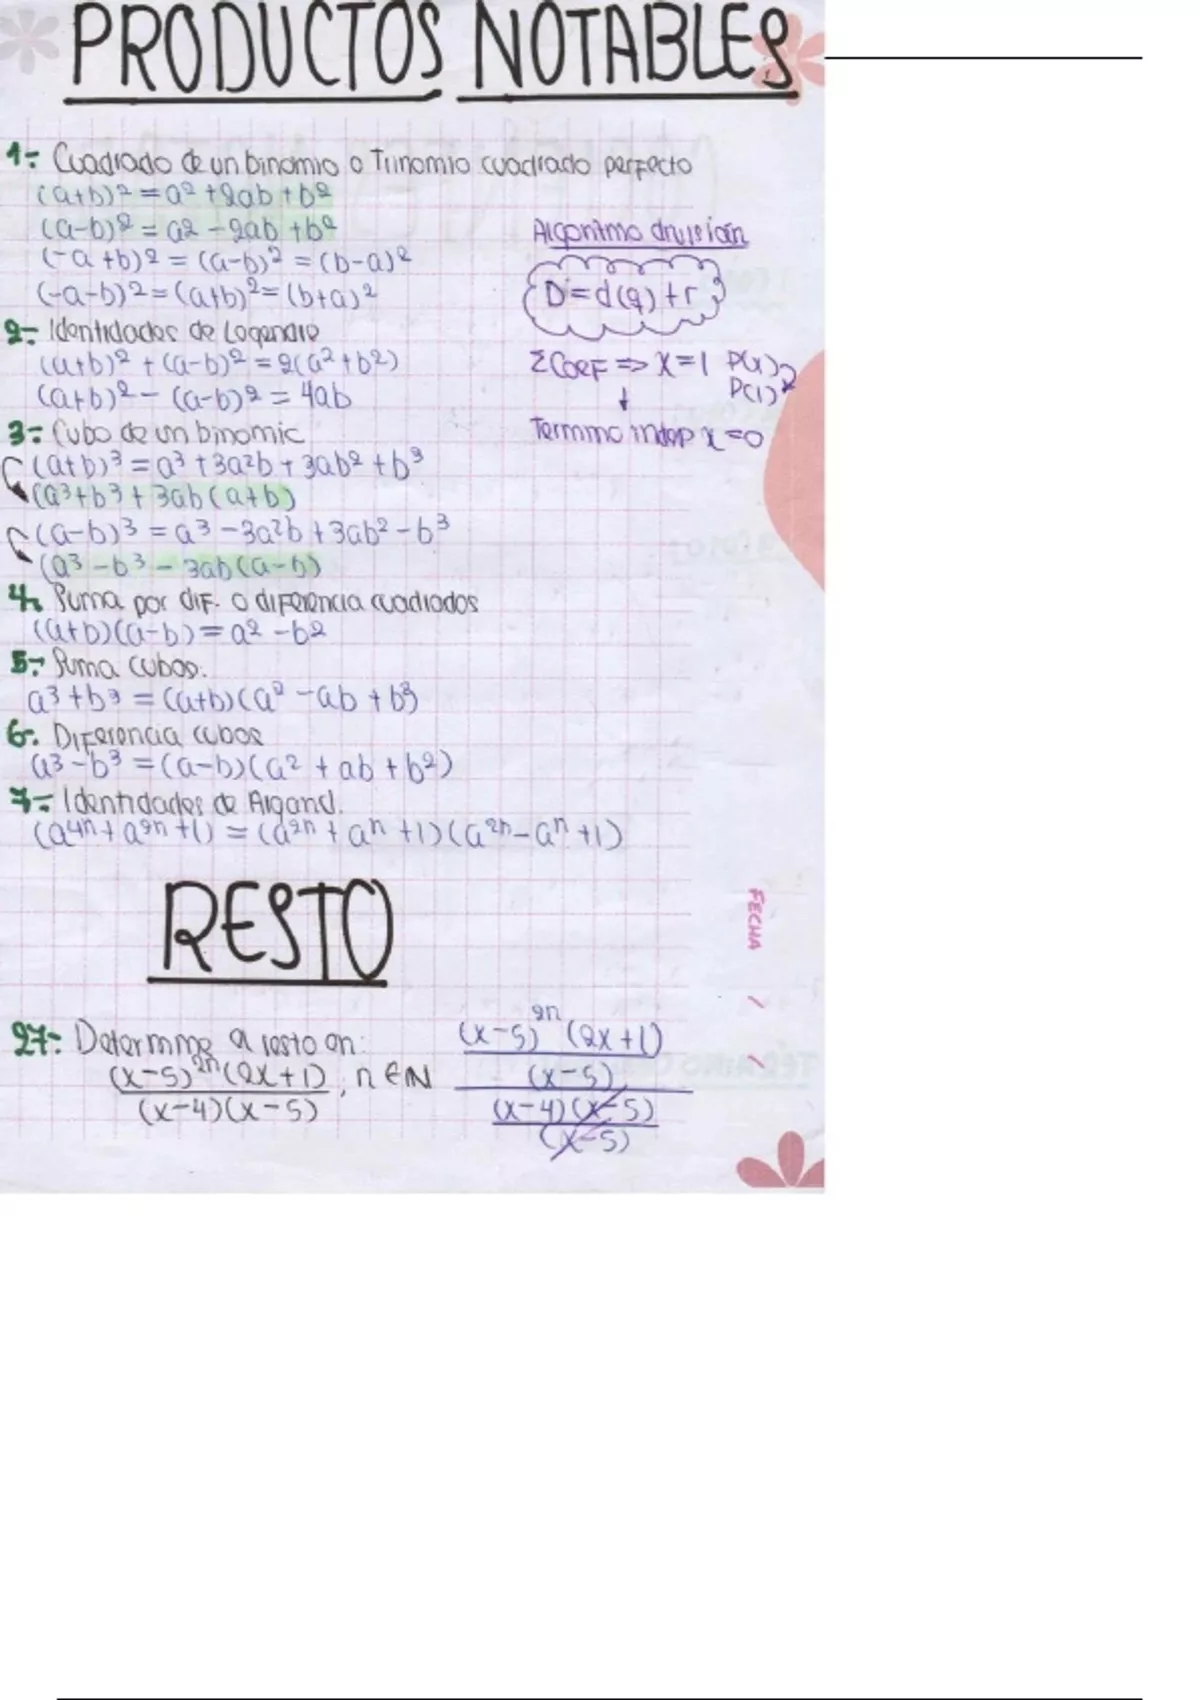 PRODUCTOS NOTABLES
1- Cuadrado de un binomio o Trinomio cuadrado perfecto
(a+b)² = a² + 2ab + b²
(a-b)² = a² - 2ab + b²
(-a+b)² = (a-b)² = (b-a)²
(-a-b)² = (a+b)² = (b+a)²
2- Identidades de Legendre
(a+b)² + (a-b)² = 2(a²+b²)
(a+b)² - (a-b)² = 4ab
3- Cubo de un binomio
(a+b)³ = a³ + 3a²b + 3ab² + b³
(a³+b³ + 3ab(a+b)
(a-b)³ = a³ - 3a²b + 3ab² - b³
(a³ - b³ - 3ab(a-b)
4- Suma por dif. o diferencia cuadrados
(a+b)(a-b) = a² - b²
5- Suma cubos.
a³ + b³ = (a+b)(a² - ab + b³)
6- Diferencia cubos
a³ - b³ = (a-b)(a² + ab + b²)
7- Identidades de Argand.
(a⁴ⁿ + a²ⁿ + 1) = (a²ⁿ + aⁿ + 1)(a²ⁿ - aⁿ + 1)
Algoritmo división
D = d(q) + r
ΣCOEF => x=1 P(x)
P(1)
↓
Termino indep x=0
RESTO
FECHA / /
27- Determine el resto en:
(x-5)²ⁿ(2x+1), n ∈ N
(x-4)(x-5)
(x-5)²ⁿ (2x+1)
(x-5)
(x-4)(x-5)
(x-5)